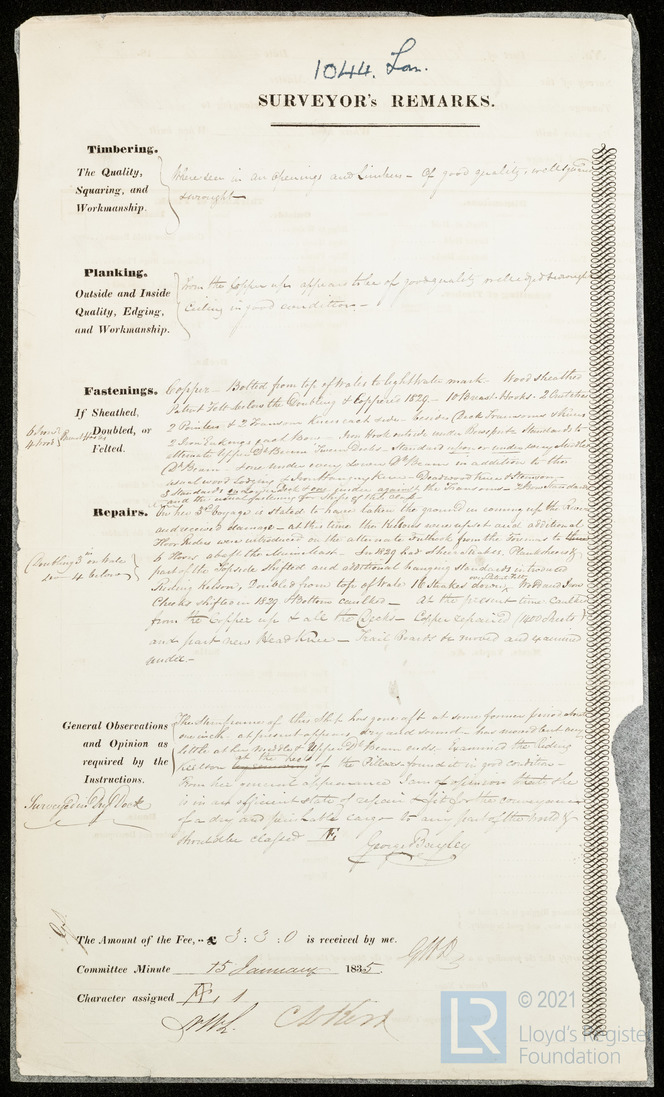 1044. Lon.
SURVEYOR's REMARKS.
Timbering.
The Quality,
Squaring, and
Workmanship.
Where seen in air openings and Limbers - Of good quality, well squared
& wrought -
Planking.
Outside and Inside
Quality, Edging,
and Workmanship.
From the Copper up appears to be of good quality well edged & wrought
Ceiling in good condition -
Fastenings.
If Sheathed,
Doubled, or
Felted.
Copper - Bolted from top of Wales to light Water mark - Wood sheathed
Patent Felt below the Doubling & Coppered 1829 - 10 Breast Hooks - 2 Crutches
2 Pointers & 2 Transom Knees each side - beside Deck Transoms & Knees
2 Iron each - Iron Hook outside under Bowsprit Standards to
alternate Upper Dk Beams Tween Decks - Standard upon or under every Middle
Dk Beam - & one under every Lower Dk Beam in addition to the
usual wood Lodging & Iron Hanging Knees - Deadwood Knee & Sternson
3 Standards on Lower Deck & one under against the Transoms -
and the usual fastening for Ships of this class
Repairs.
On her 3d Voyage is stated to have taken the ground in coming up the River
and received damage - at this time the Kelsons were up and additional
Floor Riders were introduced on the alternate Futtock from the Foremast to
6 Floors abaft the Mainmast - In 1829 had Sheerstrakes, Plank sheers,
part of the Topside shifted and additional hanging standards introduced
Riding Kelson, Doubled from top of Wale 16 strakes down, Wood and Iron
over Patent Felt
Cheeks shifted in 1829 & Bottom caulked - at the present time Caulked
from the Copper up & all the Decks - Copper repaired (1400 Sheets)
and part new Head Knee - Trail Boards be moved and
Doubling 3 in on Wale
4 below
General Observations
and Opinion as
required by the
Instructions.
Surveyed in Dry Dock
The Stern frame of this Ship has gone aft at some former period about
one inch - at present appears dry and sound - has moved but very
little at her middle & Upper Dk Beam ends - Examined the Riding
Keelson at the heels of the Pillars found it in good condition -
From her general appearance I am of opinion that she
is in an efficient state of repair & fit for the conveyance
of a dry and perishable cargo to any part of the world &
should be classed Æ
George Bayley
The Amount of the Fee, - £ 3 : 3 : 0 is received by me.
GB
Committee Minute 15 January 1835.
Character assigned Æ 1
© 2021
LR Lloyd's Register
Foundation